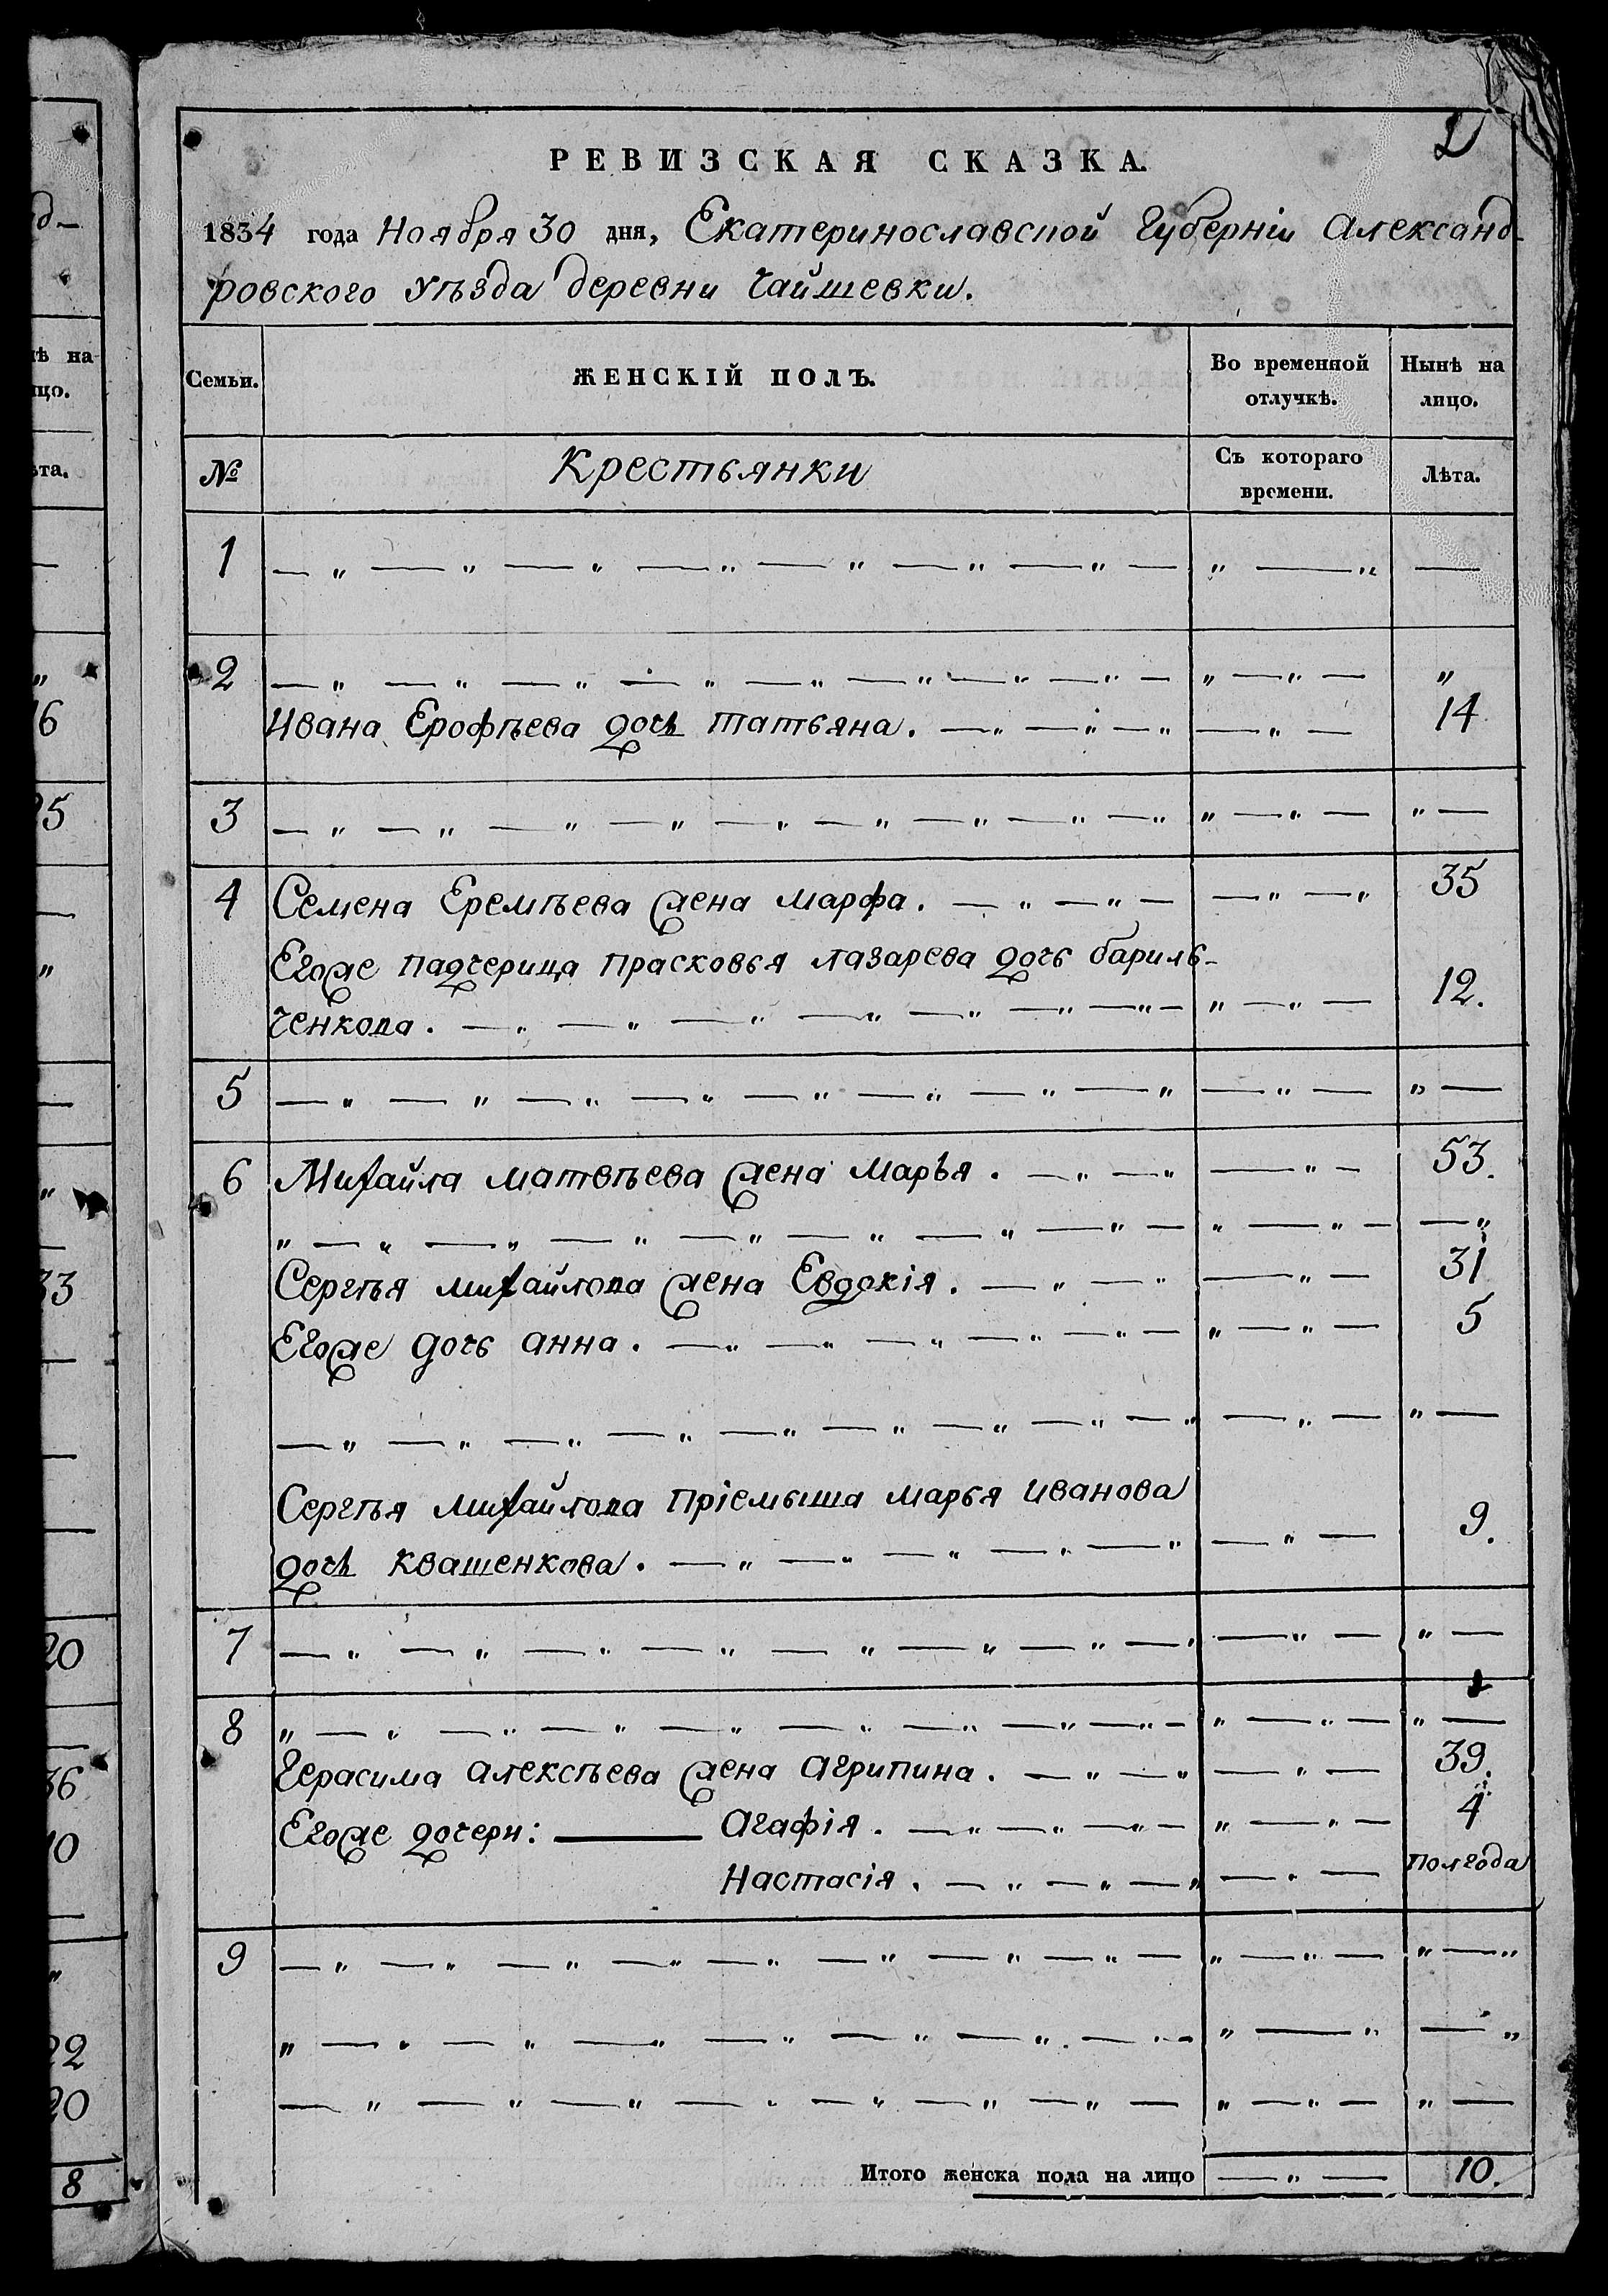 д-
2
РЕВИЗСКАЯ СКАЗКА.
1834 года Ноября 30 дня, Екатеринославской Губерніи Александ-
ровского Уѣзда деревни Чайшевки.
ѣ на
цо.
Семьи.
ЖЕНСКІЙ ПОЛЪ.
Во временной
отлучкѣ.
Нынѣ на
лицо.
ѣта.
№
Крестьянки
Съ котораго
времени.
Лѣта.
1 — „ — „ — „ — „ — „ — „ — „ — „ — „ —
2 — „ — „ — „ — „ — „ — „ — „ — „ — „ — „ — „
Ивана Ерофѣева дочь Татьяна. — „ — „ — „ — „ — 14
3 — „ — „ — „ — „ — „ — „ — „ — „ — „ „ — „ — „ —
4 Семена Еремѣева жена Марфа. — „ — „ — — „ — „ 35
Егоже падчерица Прасковья Лазарева дочь Бариль-
ченкова. — „ — „ — „ — „ — „ — „ — „ — „ — „ — 12.
5 — „ — „ — „ — „ — „ — „ — „ — „ — „ — „ —
6 Михайла Матвѣева жена Марья. — „ — „ — „ — 53.
„ — „ — „ — „ — „ — „ — „ — „ — „ — „ — — „
Сергѣя Михайлова жена Евдокія. — „ — „ — „ — 31
Егоже дочь Анна. — „ — „ — „ — „ — „ — „ — „ — 5
— „ — „ — „ — „ — „ — „ — „ — „ — „ — „ — „ —
Сергѣя Михайлова пріемыша Марья Иванова
дочь Квашенкова. — „ — „ — „ — „ — „ — „ — 9.
7 — „ — „ — „ — „ — „ — „ — „ — „ — „ — „ —
8 „ — „ — „ — „ — „ — „ — „ — „ — „ — „ — „ — „ —
Герасима Алексѣева жена Агрипина. — „ — „ — „ — 39.
Егоже дочери: — Агафія. — „ — „ — „ — „ — „ — 4
Настасія. — „ — „ — „ — „ — полгода
9 — „ — „ — „ — „ — „ — „ — „ — „ — „ — „ — „ — „
„ — „ — „ — „ — „ — „ — „ — „ — „ — „ — „
— „ — „ — „ — „ — „ — „ — „ — „ — „ — „ —
Итого женска пола на лицо — „ — 10.
6
5
33
20
36
10
22
20
8